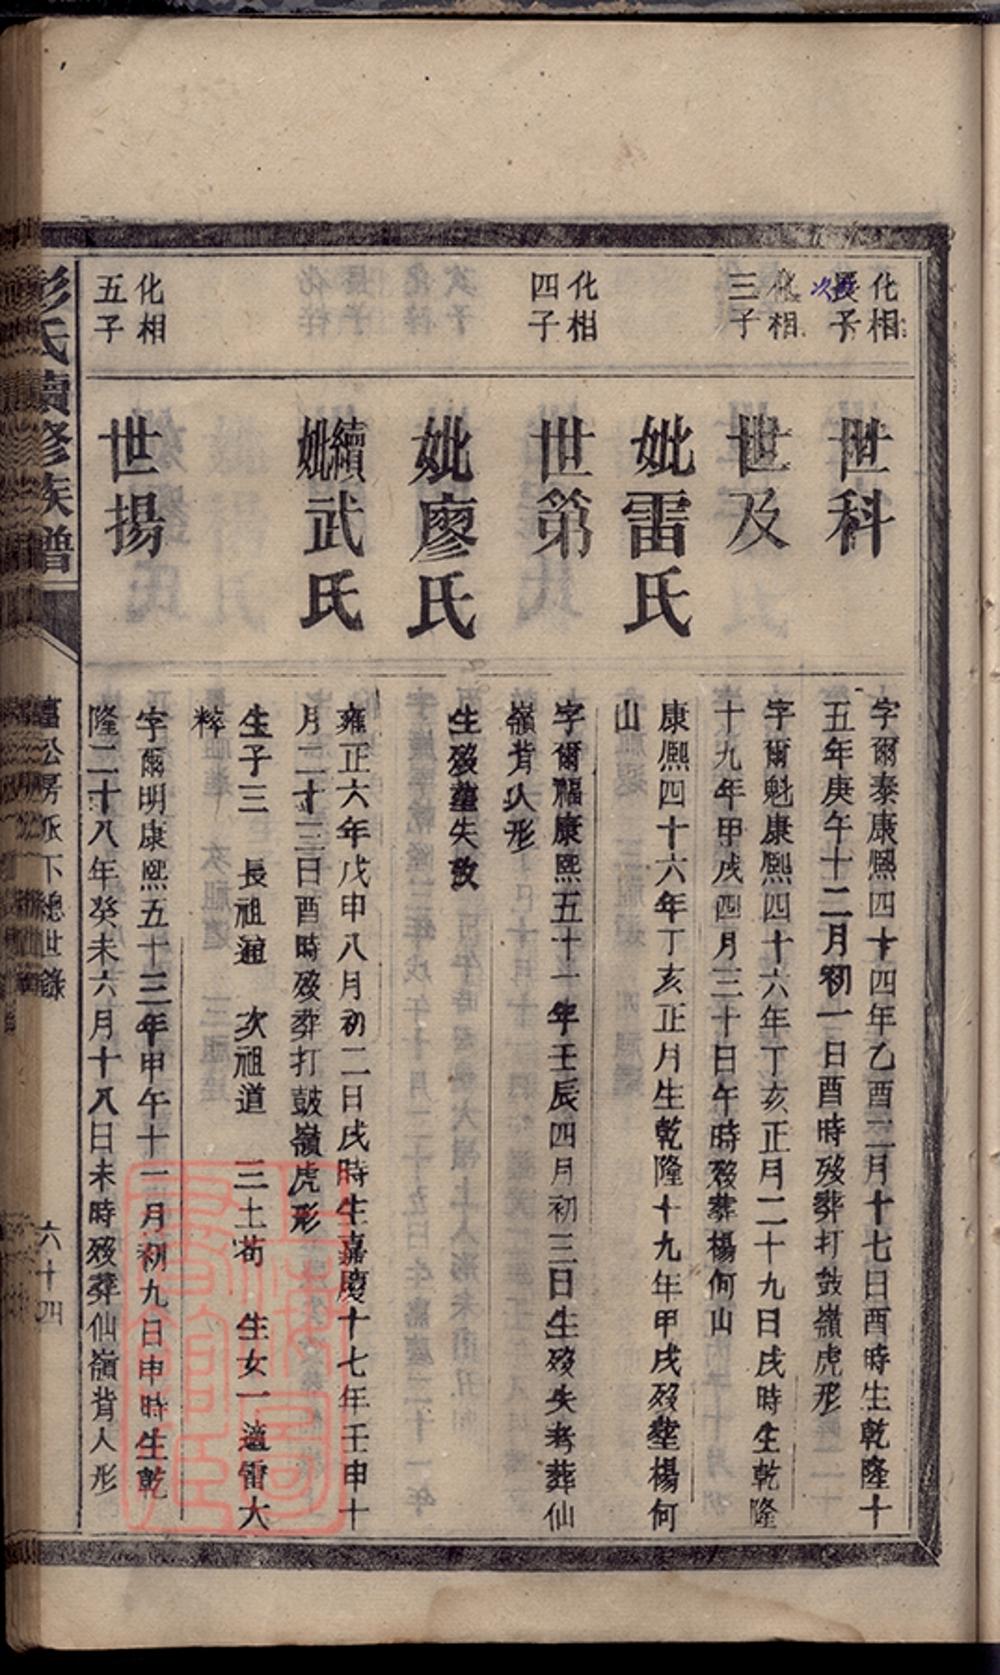 化相
長子
次
世科
字爾泰康熈四十四年乙酉二月十七日酉時生乾隆十
五年庚午十二月初一日酉時歿葬打鼓嶺虎形
化相
三子
世及
字爾魁康熈四十六年丁亥正月二十九日戌時生乾隆
十九年甲戌四月三十日午時歿葬楊何山
妣雷氏
康熈四十六年丁亥正月生乾隆十九年甲戌歿塟楊何
山
化相
四子
世第
字爾福康熈五十一年壬辰四月初三日生歿失考葬仙
嶺背人形
妣廖氏
生歿塟失攷
續妣武氏
雍正六年戊申八月初二日戌時生嘉慶十七年壬申十
月二十三日酉時歿葬打鼓嶺虎形
生子三 長祖通 次祖道 三士荀 生女一適雷大
粹
化相
五子
世揚
字爾明康熈五十三年甲午十一月初九日申時生乾
隆二十八年癸未六月十八日未時歿葬仙嶺背人形
彭氏續修族譜
富公房派下總世錄
六十四